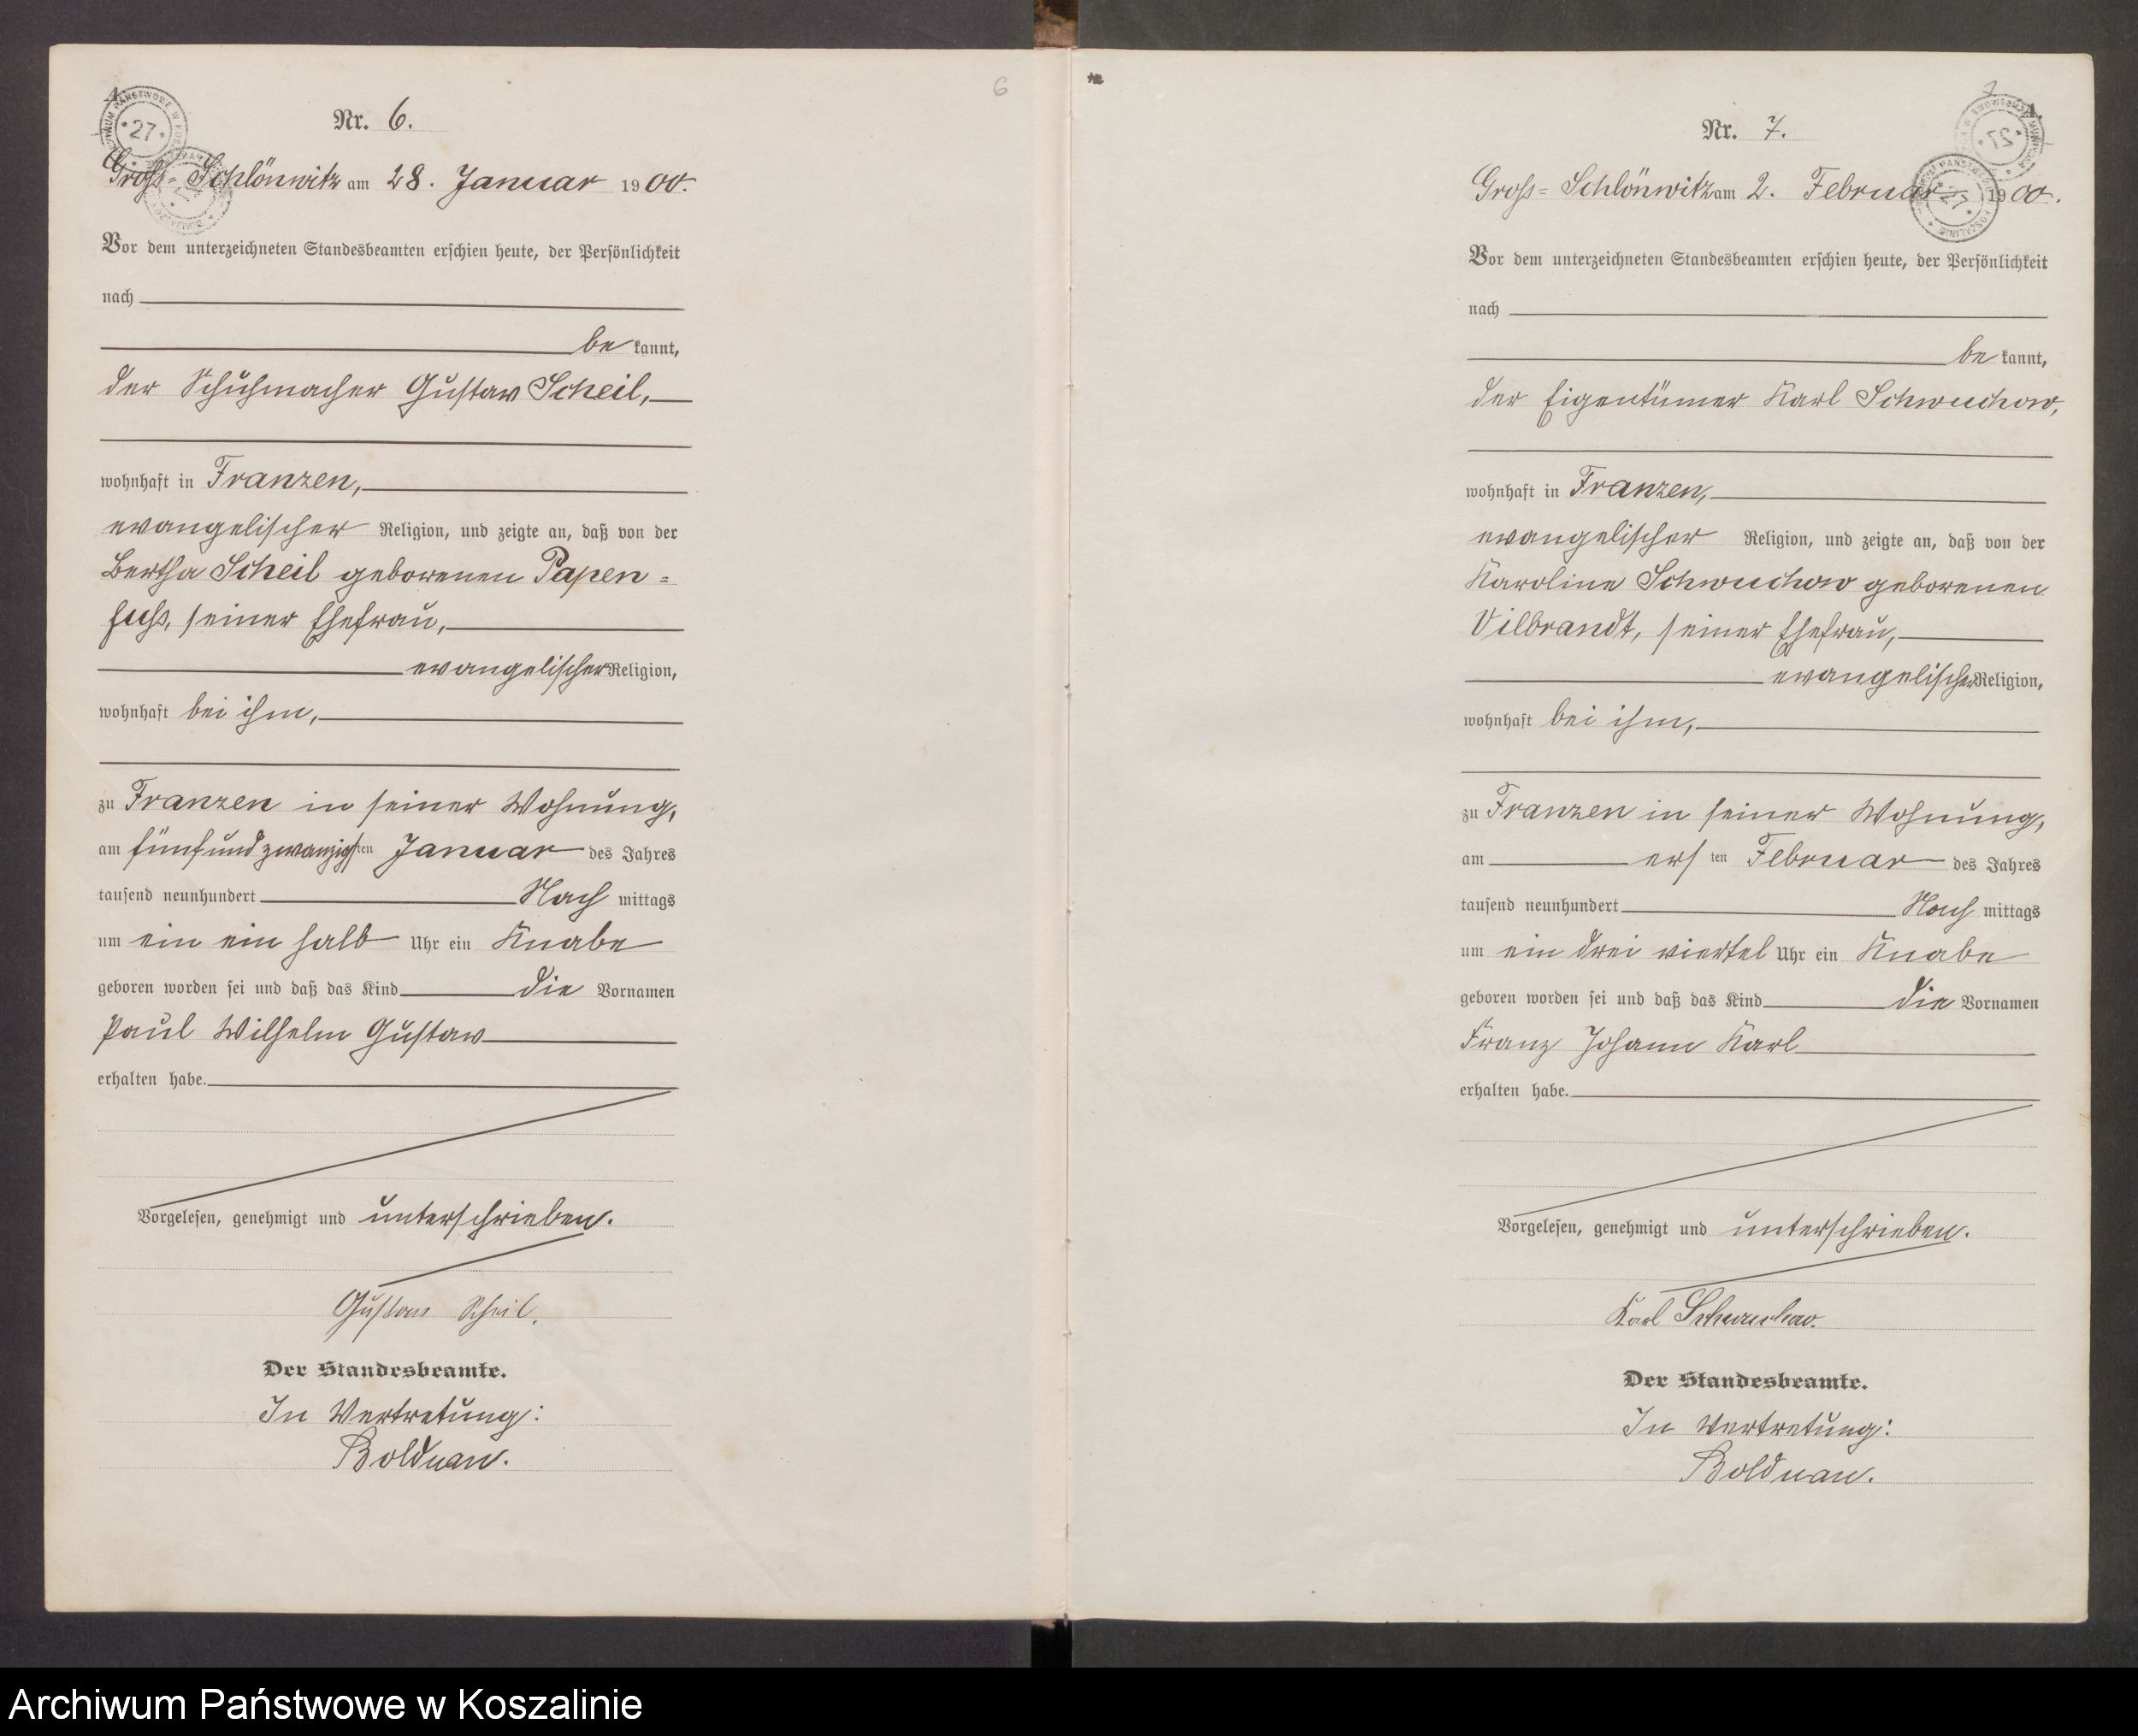 6
Nr. 6.
Groß-Schlönwitz am 28. Januar 1900.
Vor dem unterzeichneten Standesbeamten erschien heute, der Persönlichkeit
nach
be kannt,
der Schuhmacher Gustav Scheil,
wohnhaft in Franzen,
evangelischer Religion, und zeigte an, daß von der
Bertha Scheil geborenen Papen=
fuß, seiner Ehefrau,
evangelischer Religion,
wohnhaft bei ihm,
zu Franzen in seiner Wohnung,
am fünfundzwanzigsten Januar des Jahres
tausend neunhundert Nach mittags
um ein ein halb Uhr ein Knabe
geboren worden sei und daß das Kind die Vornamen
Paul Wilhelm Gustav
erhalten habe.
Vorgelesen, genehmigt und unterschrieben.
Gustav Scheil.
Der Standesbeamte.
In Vertretung:
Bolduan.
Nr. 7.
Groß=Schlönwitz am 2. Februar 1900.
Vor dem unterzeichneten Standesbeamten erschien heute, der Persönlichkeit
nach
be kannt,
der Eigentümer Karl Schwuchow,
wohnhaft in Franzen,
evangelischer Religion, und zeigte an, daß von der
Karoline Schwuchow geborenen
Vilbrandt, seiner Ehefrau,
evangelischer Religion,
wohnhaft bei ihm,
zu Franzen in seiner Wohnung,
am ersten Februar des Jahres
tausend neunhundert Nach mittags
um ein drei viertel Uhr ein Knabe
geboren worden sei und daß das Kind die Vornamen
Franz Johann Karl
erhalten habe.
Vorgelesen, genehmigt und unterschrieben.
Karl Schwuchow.
Der Standesbeamte.
In Vertretung:
Bolduan.
Archiwum Państwowe w Koszalinie